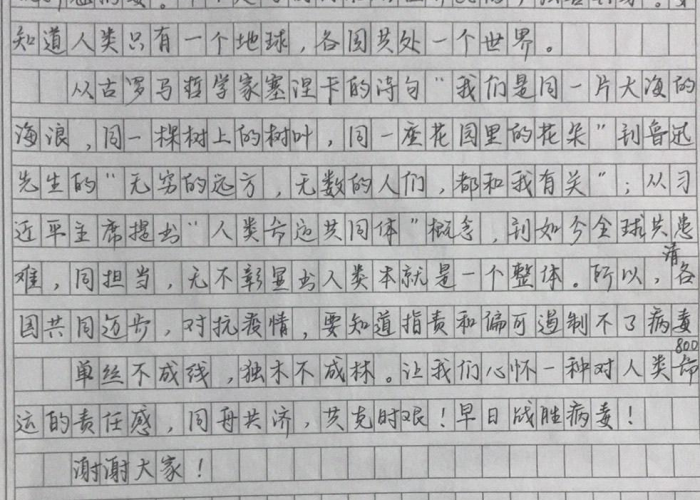 知道人类只有一个地球，各国共处一个世界。
从古罗马哲学家塞涅卡的诗句“我们是同一片大海的
海浪，同一棵树上的树叶，同一座花园里的花朵”到鲁迅
先生的“无穷的远方，无数的人们，都和我有关”；从习
近平主席提出“人类命运共同体”概念，到如今全球共患
难，同担当，无不彰显出人类本就是一个整体。所以，请各
国共同迈步，对抗疫情，要知道指责和偏可遏制不了病毒
800
单丝不成线，独木不成林。让我们心怀一种对人类命
运的责任感，同舟共济，共克时艰！早日战胜病毒！
谢谢大家！